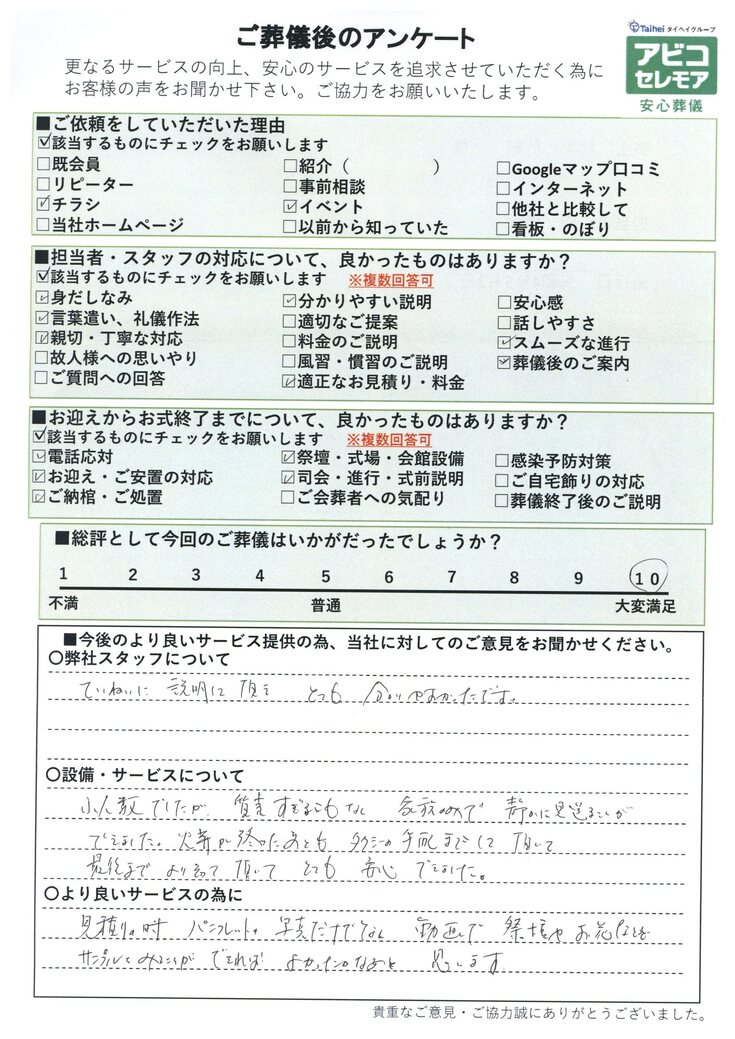 ご葬儀後のアンケート
Taihei タイヘイグループ
アビコ
セレモア
安心葬儀
更なるサービスの向上、安心のサービスを追求させていただく為に
お客様の声をお聞かせ下さい。ご協力をお願いいたします。
■ご依頼をしていただいた理由
☑該当するものにチェックをお願いします
□既会員 □紹介（ ） □Googleマップ口コミ
□リピーター □事前相談 □インターネット
☑チラシ ☑イベント □他社と比較して
□当社ホームページ □以前から知っていた □看板・のぼり
■担当者・スタッフの対応について、良かったものはありますか？
☑該当するものにチェックをお願いします ※複数回答可
☑身だしなみ ☑分かりやすい説明 □安心感
☑言葉遣い、礼儀作法 □適切なご提案 □話しやすさ
☑親切・丁寧な対応 □料金のご説明 ☑スムーズな進行
□故人様への思いやり □風習・慣習のご説明 ☑葬儀後のご案内
□ご質問への回答 ☑適正なお見積り・料金
■お迎えからお式終了までについて、良かったものはありますか？
☑該当するものにチェックをお願いします ※複数回答可
☑電話応対 ☑祭壇・式場・会館設備 □感染予防対策
☑お迎え・ご安置の対応 ☑司会・進行・式前説明 □ご自宅飾りの対応
☑ご納棺・ご処置 □ご会葬者への気配り □葬儀終了後のご説明
■総評として今回のご葬儀はいかがだったでしょうか？
1 2 3 4 5 6 7 8 9 10
不満 普通 大変満足
■今後のより良いサービス提供の為、当社に対してのご意見をお聞かせください。
〇弊社スタッフについて
ていねいに 説明して 頂き とても 分かりやすかったです。
〇設備・サービスについて
小人数でしたが、質素すぎることもなく 家族のみで 静かに見送ることが
できました。火葬が終ったあとも タクシーの手配までして 頂いて
最後まで より添って 頂いて とても 安心 できました。
〇より良いサービスの為に
見積りの時 パンフレットの 写真だけでなく 動画で 祭壇や お花などを
サンプルでみることが できれば よかったかなあと 思います
貴重なご意見・ご協力誠にありがとうございました。